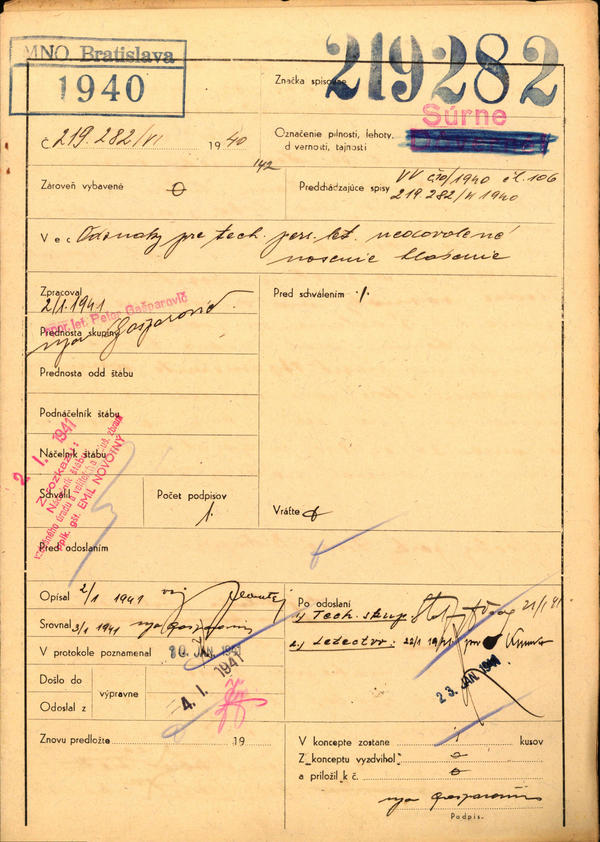 MNO Bratislava
1940
Značka spisov
219282
Súrne
Č 219.282/VI 1940
Označenie pilnosti, lehoty,
dôvernosti, tajnosti
142
Zároveň vybavené 0
Predchádzajúce spisy VV čl. 106
219.282/VI 1940
Vec Odznaky pre tech. pers. let. nedovolené
nosenie hlásenie
Zpracoval
2/1.1941
npor. let. Peter Gašparovič
Prednosta skupiny
Gašparovič
Prednosta odd. štábu
Podnáčelník štábu
Náčelník štábu
2. I. 1941
Z rozkazu:
Náčelník štábu
pplk. gšt. EMIL NOVOTNÝ
Schválil
Počet podpisov
1.
Pred schválením ·/.
Vráťte
Pred odoslaním
Opísal 2/1 1941
Srovnal 3/1 1941 Gašparovič
V protokole poznamenal 10. JAN. 1941
Došlo do
Odoslal z
výpravne
4. I. 1941
Po odoslaní
1) Tech. skup. 21/1 41
2) Letectvo: 22/1 1941
23. JAN. 1941
Znovu predložte 19
V koncepte zostane 1 kusov
Z „konceptu vyzdvihol" 0
a priložil k č. 0
Gašparovič
Podpis.